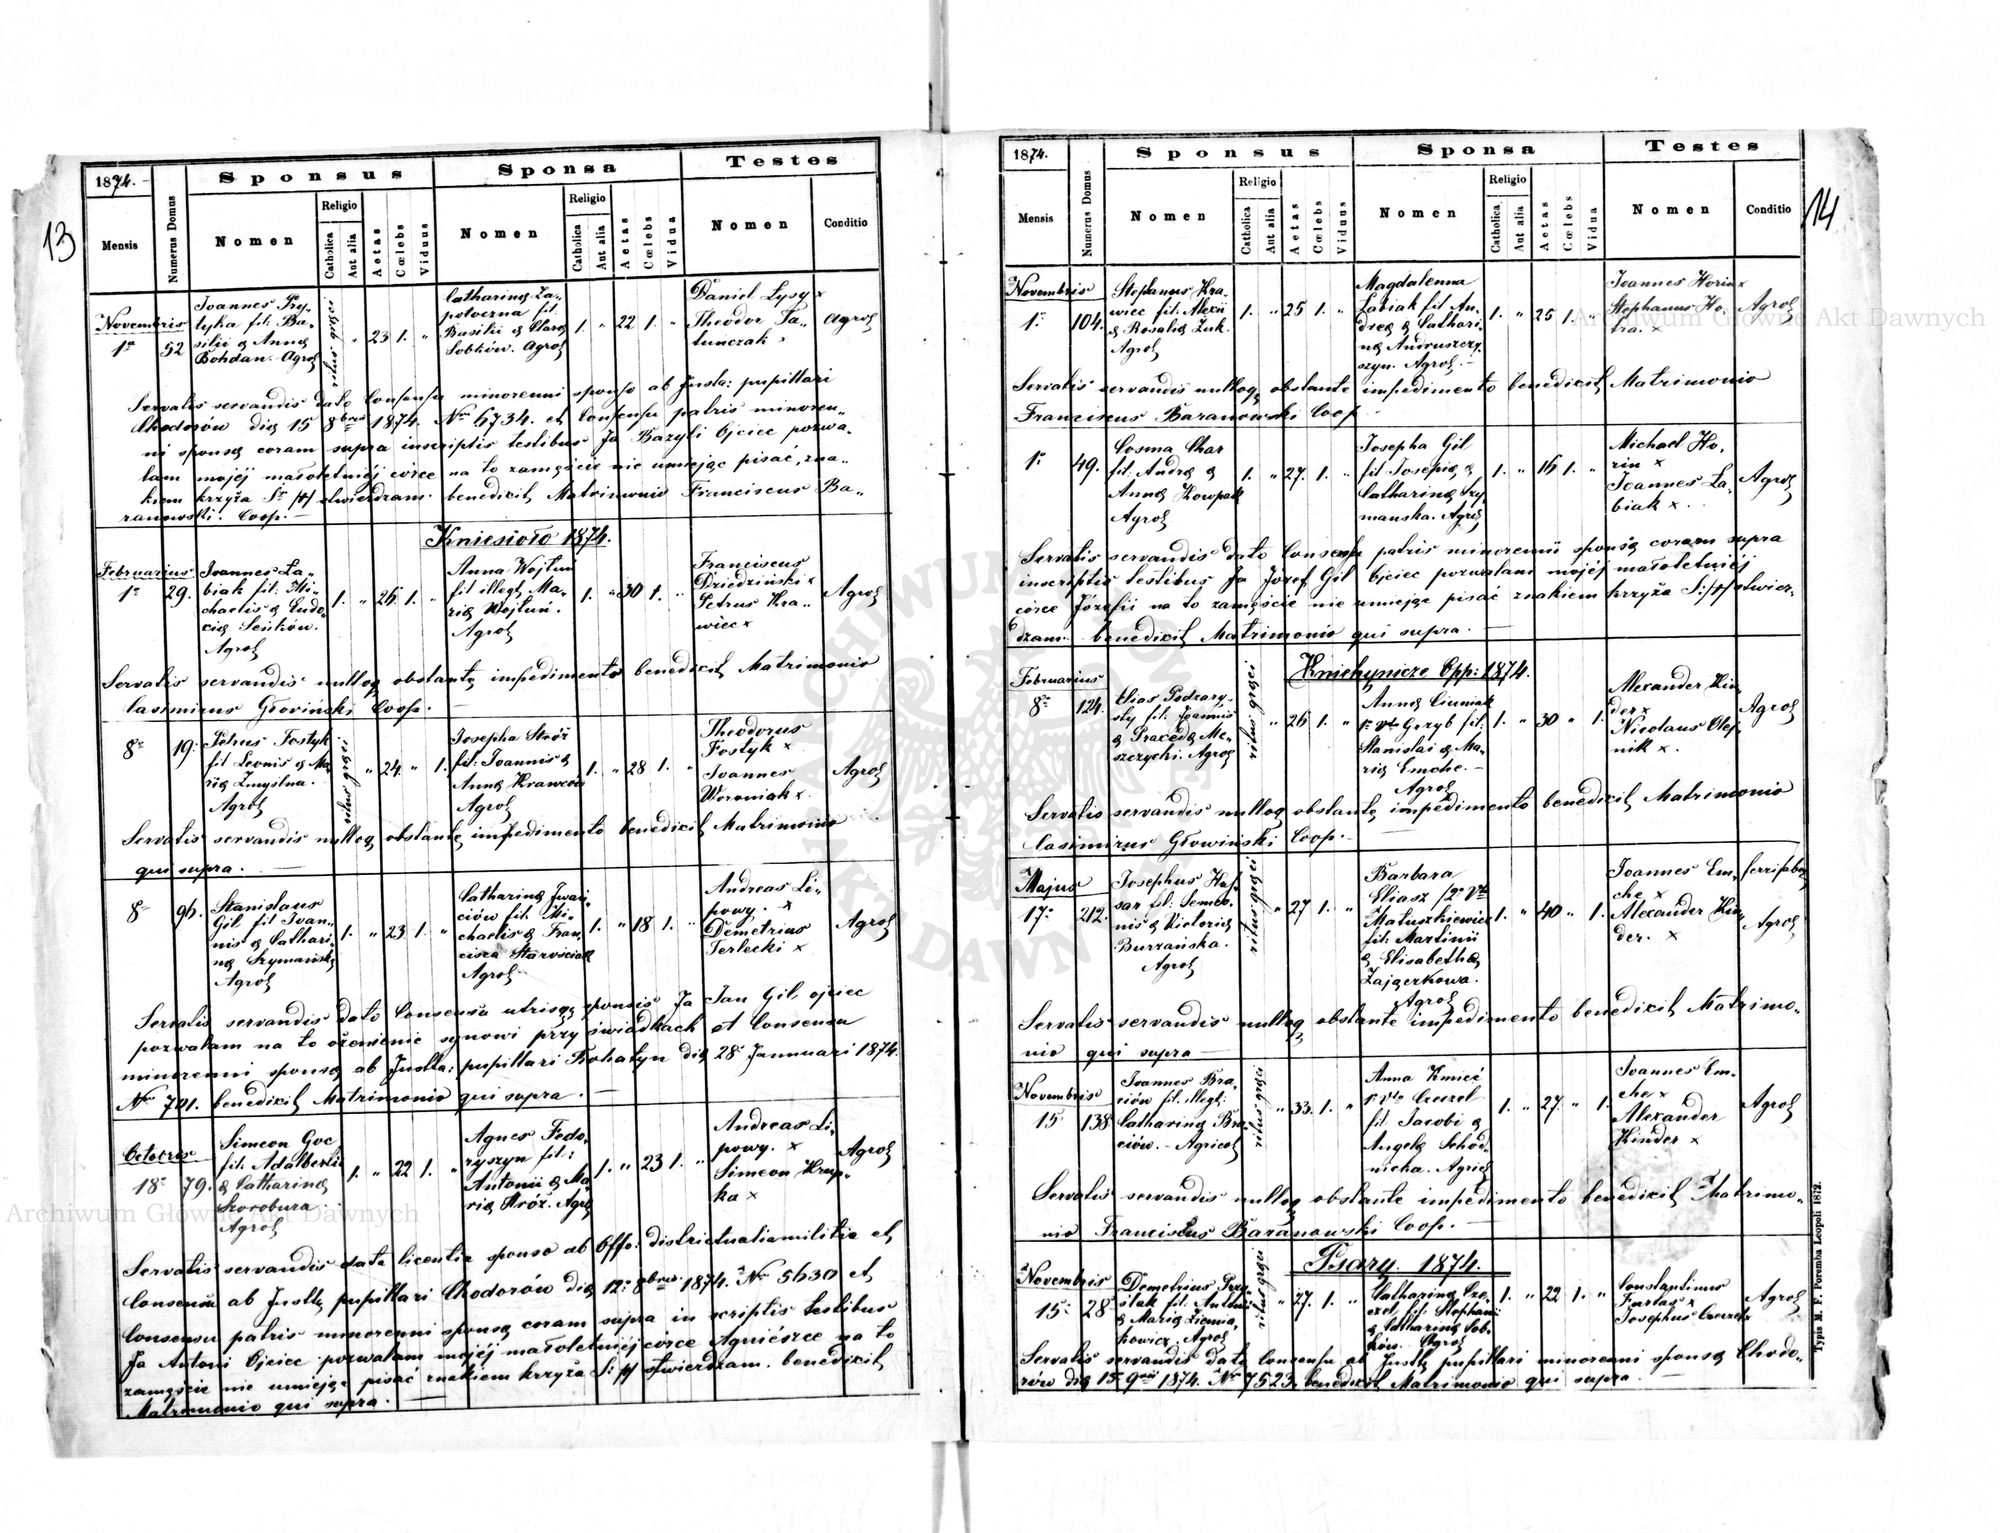 13
1874.
Sponsus
Sponsa
Testes
Mensis
Numerus Domus
Nomen
Religio
Catholica
Aut alia
Aetas
Cœlebs
Viduus
Nomen
Religio
Catholica
Aut alia
Aetas
Cœlebs
Vidua
Nomen
Conditio
Novembris
1ª
52
Joannes
silii & Anna
Bohdan. Agrol
ritus graeci
" 23 1. "
Catharina Za-
potoczna fil.
Basilii & Clara
Sobków. Agrol
1. " 22 1. "
Daniel Łysy x
Theodor Ta-
tunczak x
Agrol
Servatis servandis dato Consensu minorenni sponso ab Justa: pupillari
Chodorów die 15 8bris 1874. Nro 6734. et Consensu patris minoren-
ni sponsa coram supra inscriptis testibus Ja Bazyli Ojciec pozwa-
lam mojéj małoletniéj córce na to zamęście nie umiejąc pisać, zna-
kiem krzyża Sº /+/ stwierdzam. benedixit Matrimonio Franciscus Ba-
ranowski. Coop. —
Kniesioło 1874.
Februarius
1ª
29.
Joannes La-
biak fil: Mi-
chaelis & Eudo-
cia Seńków.
Agrol
1. " 26 1. "
Anna Wojtuń
fil illegt, Ma-
ria Wojtuń.
Agrol
1. " 30 1. "
Franciscus
Dziedziński x
Petrus Kra-
wiec x
Agrol
Servatis servandis nulloq obstante impedimento benedixit Matrimonio
Casimirus Głowiński Coop. —
8ª
19.
Petrus Fostyk
fil Leonis & Ma-
ria Zmyślna.
Agrol
ritus graeci
" 24. " 1.
Josepha Stróż
fil: Joannis &
Anna Krawców
Agrol
1. " 28 1. "
Theodorus
Fostyk x
Joannes
Woroniak x
Agrol
Servatis servandis nulloq obstante impedimento benedixit Matrimonio
qui supra. —
8ª
96.
Stanislaus
Gil fil Joan-
nis & Cathari-
na Szymańska
Agrol
1. " 23 1. "
Catharina Iwań-
ciów fil: Mi-
chaelis & Fran-
cisca Starościak
Agrol
1. " 18 1. "
Andreas Li-
powy. x
Demetrius
Terlecki x
Agrol
Servatis servandis dato Consensu utrisq sponsis Ja Jan Gil, ojciec
pozwalam na to ożenienie synowi przy świadkach et Consensu
minorenni sponsa ab Justta: pupillari Rohatyn die 28 Januari 1874.
Nro 701. benedixit Matrimonio qui supra. —
Octobris
18ª
79.
Simeon Goc
fil: Adalberti
& Catharina
Szorobura
Agrol
1. " 22 1. "
Agnes Fedo-
ryszyn fil:
Antonii & Ma-
ria Stróż. Agrol
1. " 23 1. "
Andreas Li-
powy. x
Simeon Krup-
ka x
Agrol
Servatis servandis data licentia sponso ab Offo: districtualiamilitia et
Consensu ab Justta pupillari Chodorów die 12: 8bris 1874. Nro 5630 et
Consensu patris minorenni sponsa coram supra in scriptis testibus
Ja Antoni Ojciec pozwalam mojéj małoletniéj córce Agniészce na to
zamęście nie umiejąc pisać znakiem krzyża S: /+/ stwierdzam. benedixit
Matrimonio qui supra. —
14
1874.
Sponsus
Sponsa
Testes
Mensis
Numerus Domus
Nomen
Religio
Catholica
Aut alia
Aetas
Cœlebs
Viduus
Nomen
Religio
Catholica
Aut alia
Aetas
Cœlebs
Vidua
Nomen
Conditio
Novembris
1ª
104.
Stephanus Kra-
wiec fil: Alexii
& Rosalia Żuk.
Agrol
1. " 25 1. "
Magdalenna
Łabiak fil An-
drea & Cathari-
na Andruszczy-
szyn. Agrol. —
1. " 25 1. "
Joannes Horin x
Stephanus Ho-
tra. x
Agrol
Servatis servandis nulloq obstante impedimento benedixit Matrimonio
Franciscus Baranowski Coop
1ª
49.
Cosma Char
fil: Andrea &
Anna Kowpak
Agrol
1. " 27. 1. "
Josepha Gil
fil Josephi &
Catharina Szy-
manska. Agrol
1. " 16 1. "
Michael Ho-
rin x
Joannes La-
biak x.
Agrol
Servatis servandis dato Consensu patris minorennis sponsa coram supra
inscriptis testibus Ja Józef Gil Ojciec pozwalam mojéj małoletniéj
córce Józefii na to zamęście nie umiejąc pisać znakiem krzyża S: /+/ stwier-
dzam. benedixit Matrimonio qui supra. —
Kniehynicze Opp: 1874.
Februarius
8ª
124.
Elias Podzary-
sty fil: Joannis
& Praxeda Me-
szczycki. Agrol
ritus graeci
" 26 1. "
Anna Ciuniak
1º Vto Grzyb fil.
Stanislai & Ma-
ria Emche. —
Agrol
1. " 30 " 1.
Alexander Kin-
der x
Nicolaus Olej-
nik x.
Agrol
Servatis servandis nulloq obstante impedimento benedixit Matrimonio
Casimirus Głowiński Coop. —
Majus
17ª
212.
Josephus Hu-
sar fil: Semeo-
nis & Victoria
Burzańska.
Agrol
ritus graeci
" 27 1. "
Barbara
Eliasz /2º Vto
Matuszkiewicz
fil: Martinii
& Elisabetha
Zajgerkowa.
Agrol
1. " 40 " 1.
Joannes Em-
che x
Alexander Kin-
der. x
ferrifaber
Agrol
Servatis servandis nulloq obstante impedimento benedixit Matrimo-
nio qui supra —
Novembris
15
138.
Joannes Bra-
ciów fil. illegt:
Catharina Bra-
ciów. — Agricol
ritus graeci
" 33. 1. "
Anna Kmieć
1º Vto Czeczel
fil Jacobi &
Angela Schod-
nicka. Agrico
1. " 27. " 1.
Joannes Em-
che x
Alexander
Kinder x
Agrol
Servatis servandis nulloq obstante impedimento benedixit Matrimo-
nio Franciscus Baranowski Coop. —
Psary. 1874.
Novembris
15ª
28
Demetrius Przy-
stak fil: Antonii
& Maria Ziemia-
kowicz. Agrol
ritus graeci
" 27. 1. "
Catharina Cze-
czel fil: Stephani
& Catharina Sob-
ków. Agrol
1. " 22 1. "
Constantinus
Furtas x
Josephus Czeczel x
Agrol
Servatis servandis dato Consensu ab Justta pupillari minorenni sponsa Chodo-
rów die 15 9bris 1874. Nro 7523. benedixit Matrimonio qui supra. —
Typis M. F. Poremba Leopoli 1872.
Archiwum Główne Akt Dawnych
Archiwum Główne Akt Dawnych
ARCHIWUM GŁÓWNE AKT DAWNYCH